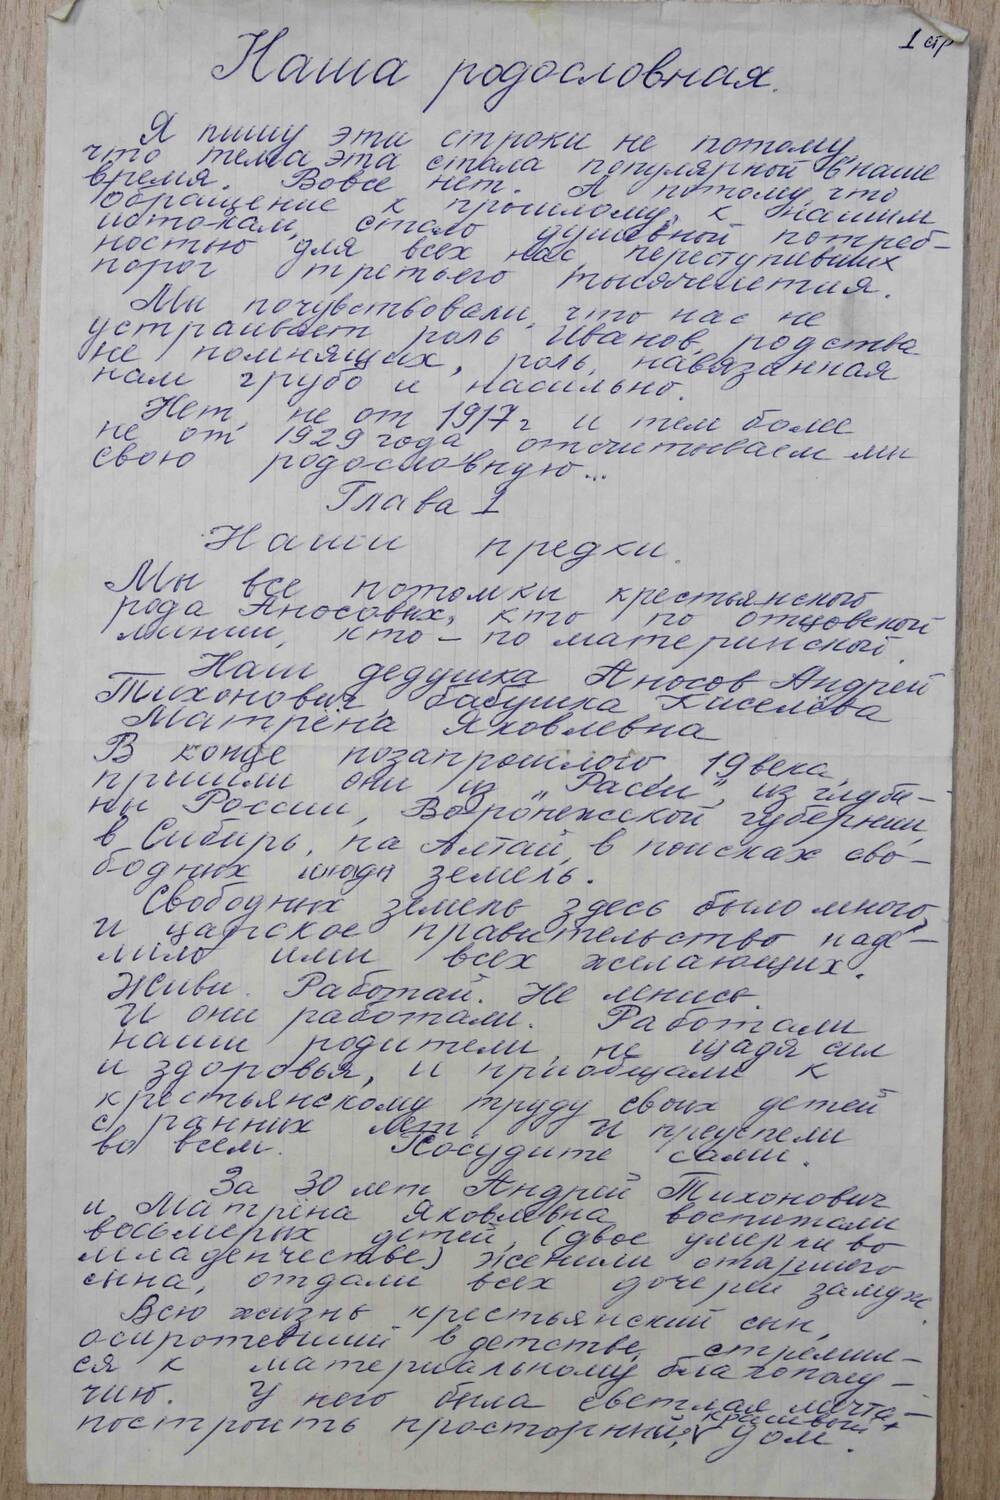 1 стр
Наша родословная.
Я пишу эти строки не потому,
что тема эта стала популярной в наше
время. Вовсе нет. А потому, что
обращение к прошлому, к нашим
истокам, стало душевной потреб-
ностью для всех нас, переступивших
порог третьего тысячелетия.
Мы почувствовали, что нас не
устраивает роль Иванов, родства
не помнящих, роль, навязанная
нам грубо и насильно.
Нет, не от 1917г и тем более
не от 1929 года отсчитываем мы
свою родословную...
Глава 1
Наши предки.
Мы все потомки крестьянского
рода Аносовых, кто по отцовской
линии, кто - по материнской.
Наш дедушка Аносов Андрей
Тихонович, бабушка Киселёва
Матрёна Яковлевна
В конце позапрошлого 19 века,
пришли они из „Расеи", из глуби-
ны России, Воронежской губернии,
в Сибирь, на Алтай, в поисках сво-
бодных земель.
Свободных земель здесь было много,
и царское правительство наде-
лило ими всех желающих.
Живи. Работай. Не ленись.
И они работали. Работали
наши родители, не щадя сил
и здоровья, и приобщали к
крестьянскому труду своих детей
с ранних лет. И преуспели
во всём. Посудите сами.
За 30 лет Андрей Тихонович
и Матрёна Яковлевна воспитали
восьмерых детей, (двое умерли во
младенчестве) женили старшего
сына, отдали всех дочерей замуж.
Всю жизнь крестьянский сын,
осиротевший в детстве, стремил-
ся к материальному благополу-
чию. У него была светлая мечта, -
построить просторный, красивый дом.